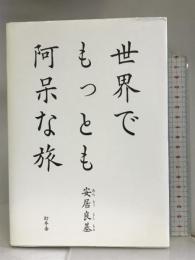 世界で
もっとも
阿呆な旅
安居良基
幻冬舎